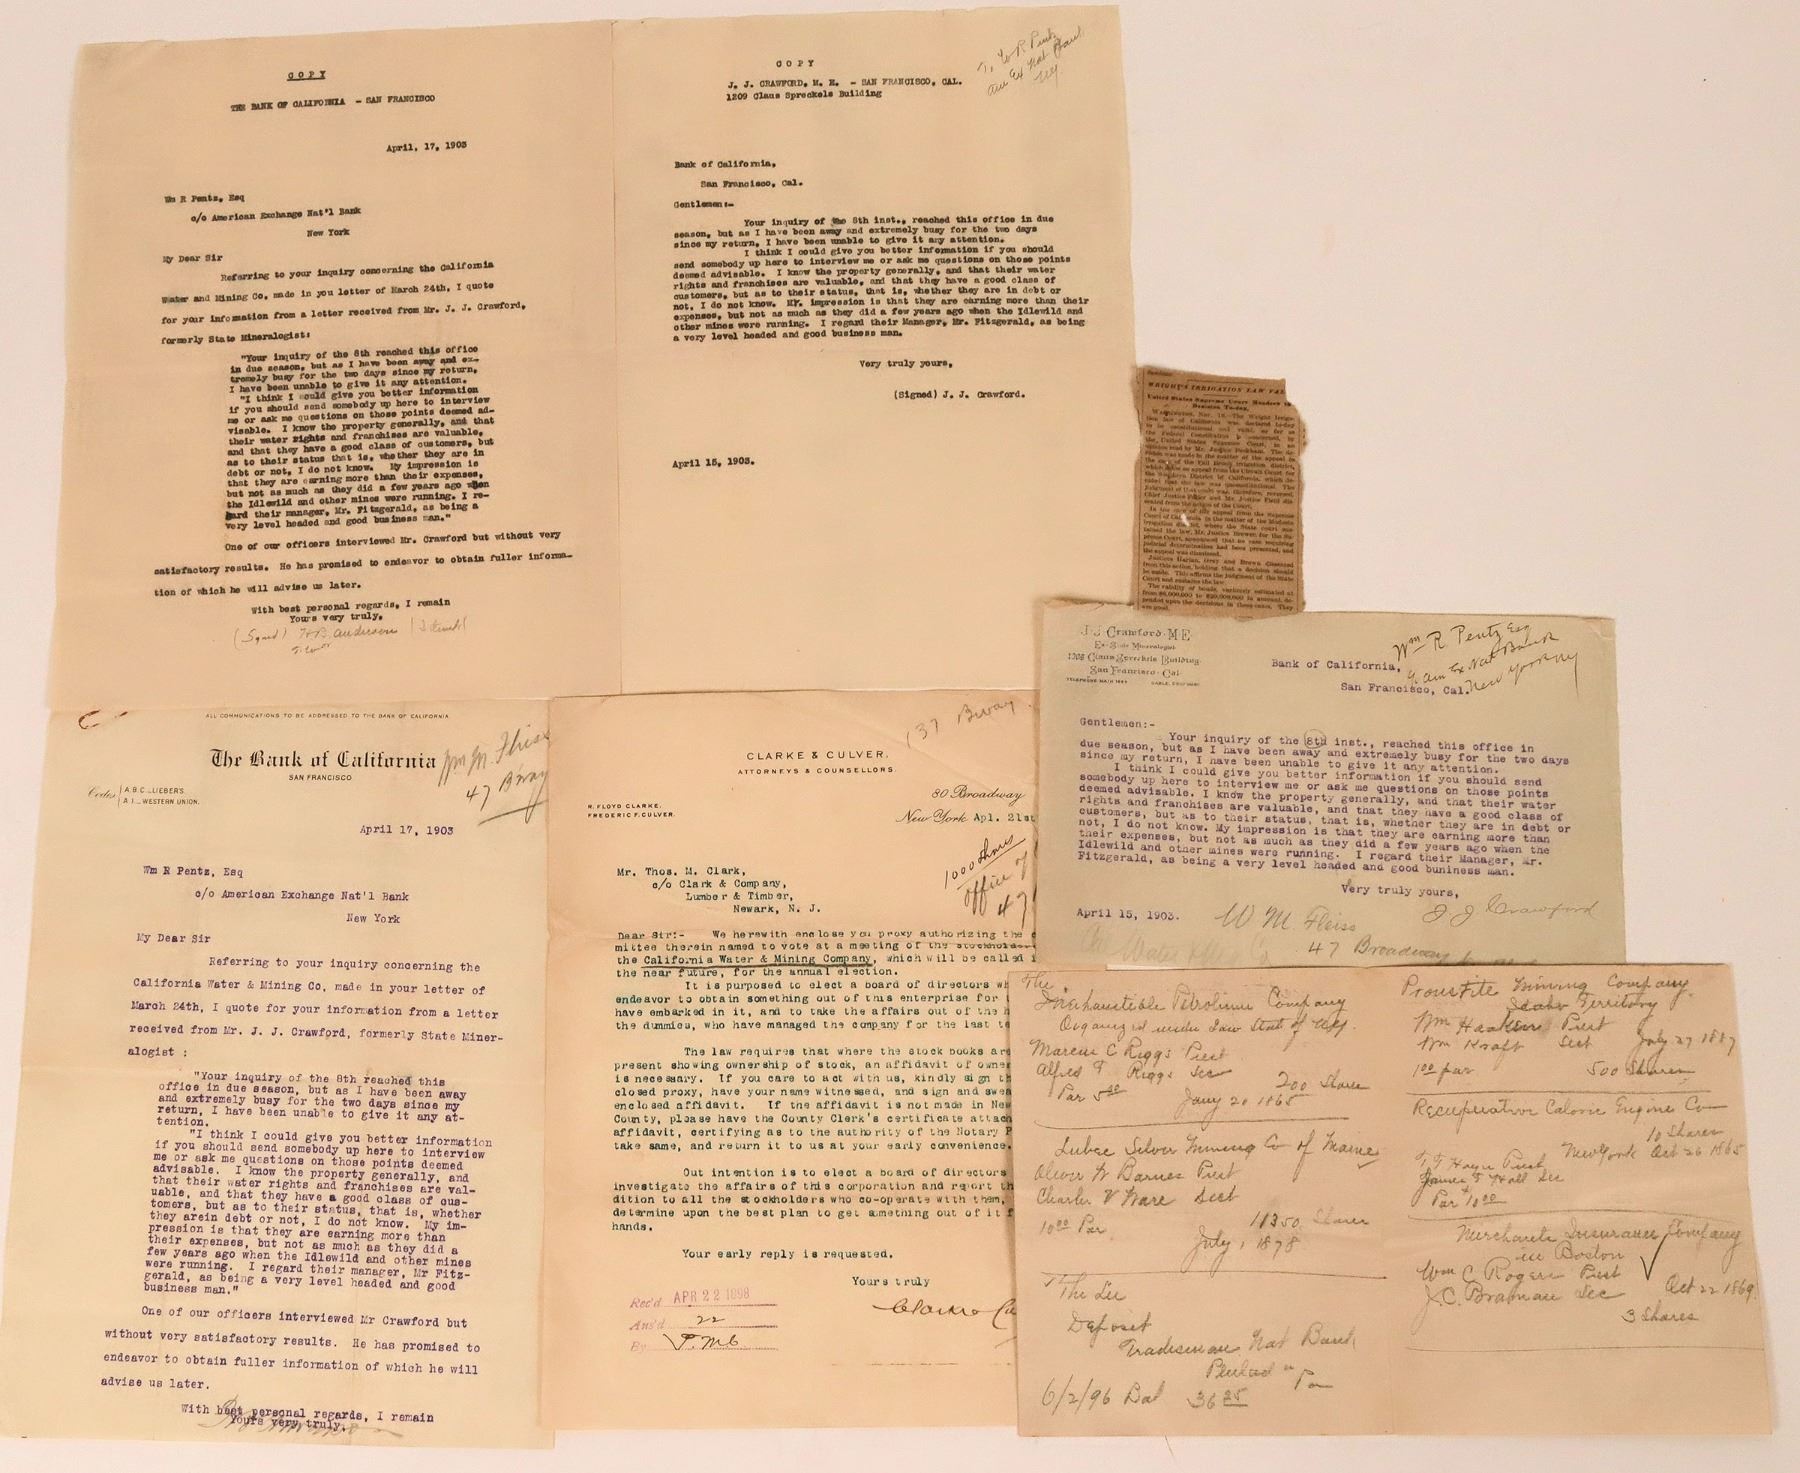 COPY
THE BANK OF CALIFORNIA - SAN FRANCISCO
April, 17, 1903
Wm R Pentz, Esq
c/o American Exchange Nat'l Bank
New York
My Dear Sir
Referring to your inquiry concerning the California
Water and Mining Co, made in you letter of March 24th, I quote
for your information from a letter received from Mr. J. J. Crawford,
formerly State Mineralogist:
"Your inquiry of the 8th reached this office
in due season, but as I have been away and ex-
tremely busy for the two days since my return,
I have been unable to give it any attention.
"I think I could give you better information
if you should send somebody up here to interview
me or ask me questions on those points deemed ad-
visable. I know the property generally, and that
their water rights and franchises are valuable,
and that they have a good class of customers, but
as to their status that is, whether they are in
debt or not, I do not know. My impression is
that they are earning more than their expenses,
but not as much as they did a few years ago when
the Idlewild and other mines were running. I re-
gard their manager, Mr. Fitzgerald, as being a
very level headed and good business man."
One of our officers interviewed Mr. Crawford but without very
satisfactory results. He has promised to endeavor to obtain fuller informa-
tion of which he will advise us later.
With best personal regards, I remain
Yours very truly,
(Signed) Anderson
COPY
J. J. CRAWFORD, M. E. - SAN FRANCISCO, CAL.
1209 Claus Spreckels Building
To W R Pentz
Am Ex Nat Bank
NY
Bank of California,
San Francisco, Cal.
Gentlemen:-
Your inquiry of the 8th inst., reached this office in due
season, but as I have been away and extremely busy for the two days
since my return, I have been unable to give it any attention.
I think I could give you better information if you should
send somebody up here to interview me or ask me questions on those points
deemed advisable. I know the property generally, and that their water
rights and franchises are valuable, and that they have a good class of
customers, but as to their status, that is, whether they are in debt or
not, I do not know. My impression is that they are earning more than their
expenses, but not as much as they did a few years ago when the Idlewild and
other mines were running. I regard their Manager, Mr. Fitzgerald, as being
a very level headed and good business man.
Very truly yours,
(Signed) J. J. Crawford.
April 15, 1903.
WRIGHT'S IRRIGATION LAW
United States Supreme Court Renders
Decision To-day.
ALL COMMUNICATIONS TO BE ADDRESSED TO THE BANK OF CALIFORNIA
The Bank of California
SAN FRANCISCO
Codes
A.B.C. LIEBER'S
A.I. WESTERN UNION.
Wm M. Fleiss
47 B'way
April 17, 1903
Wm R Pentz, Esq
c/o American Exchange Nat'l Bank
New York
My Dear Sir
Referring to your inquiry concerning the
California Water & Mining Co, made in your letter of
March 24th, I quote for your information from a letter
received from Mr. J. J. Crawford, formerly State Miner-
alogist :
"Your inquiry of the 8th reached this
office in due season, but as I have been away
and extremely busy for the two days since my
return, I have been unable to give it any at-
tention.
"I think I could give you better information
if you should send somebody up here to interview
me or ask me questions on those points deemed
advisable. I know the property generally, and
that their water rights and franchises are val-
uable, and that they have a good class of cus-
tomers, but as to their status, that is, whether
they arein debt or not, I do not know. My im-
pression is that they are earning more than
their expenses, but not as much as they did a
few years ago when the Idlewild and other mines
were running. I regard their manager, Mr Fitz-
gerald, as being a very level headed and good
business man."
One of our officers interviewed Mr Crawford but
without very satisfactory results. He has promised to
endeavor to obtain fuller information of which he will
advise us later.
With best personal regards, I remain
Yours very truly,
137 B'way
CLARKE & CULVER,
ATTORNEYS & COUNSELLORS
R. FLOYD CLARKE.
FREDERIC F. CULVER.
80 Broadway
New York Apl. 21st
1000 shares
office of
47
Mr. Thos. M. Clark,
c/o Clark & Company,
Lumber & Timber,
Newark, N. J.
Dear Sir:- We herewith enclose you proxy authorizing the
mittee therein named to vote at a meeting of the stockholde
the California Water & Mining Company, which will be called i
the near future, for the annual election.
It is purposed to elect a board of directors wh
endeavor to obtain something out of this enterprise for
have embarked in it, and to take the affairs out of the h
the dummies, who have managed the company for the last te
The law requires that where the stock books are
present showing ownership of stock, an affidavit of owner
is necessary. If you care to act with us, kindly sign th
closed proxy, have your name witnessed, and sign and swea
enclosed affidavit. If the affidavit is not made in New
County, please have the County Clerk's certificate attach
affidavit, certifying as to the authority of the Notary P
take same, and return it to us at your early convenience.
Out intention is to elect a board of directors
investigate the affairs of this corporation and report th
dition to all the stockholders who co-operate with them,
determine upon the best plan to get something out of it f
hands.
Your early reply is requested.
Yours truly
Clarke Cu
Rec'd APR 22 1898
Ans'd 22
By T.M.C
J. J. Crawford. M.E.
Ex-State Mineralogist
1209 Claus Spreckels Building
San Francisco Cal.
Wm R Pentz Esq
c/o Am Ex Nat Bank
New York NY
Bank of California,
San Francisco, Cal.
Gentlemen:-
Your inquiry of the 8th inst., reached this office in
due season, but as I have been away and extremely busy for the two days
since my return, I have been unable to give it any attention.
I think I could give you better information if you should send
somebody up here to interview me or ask me questions on those points
deemed advisable. I know the property generally, and that their water
rights and franchises are valuable, and that they have a good class of
customers, but as to their status, that is, whether they are in debt or
not, I do not know. My impression is that they are earning more than
their expenses, but not as much as they did a few years ago when the
Idlewild and other mines were running. I regard their Manager, Mr.
Fitzgerald, as being a very level headed and good buniness man.
Very truly yours,
J J Crawford
April 15, 1903.
W M. Fleiss
47 Broadway
The
Inexhaustible Petroleum Company
Organized under Law State of NY.
Marcus C Riggs Prest
Alfred T Riggs Sec
200 Shares
Par 5.00 Jany 20 1865
Lubec Silver Mining Co of Maine
Oliver W Barnes Prest
Charles V Ware Sect
10.00 Par 11350 Shares
July 1 1878
The Lu
Deposit
Tradesman Nat Bank
Philad Pa
6/2/96 Bal 36 25
Proustite Mining Company
Idaho Territory
Wm Prest
Wm Kraft Sect July 27 1887
1.00 par 500 Shares
Recuperative Caloric Engine Co
10 Shares
New York Oct 26 1865
T T Hayes Prest
James F Hall Sec
Par $10.00
Merchants Insurance Company
in Boston
Wm C Rogers Prest
J.C. Braman Sec Oct 22 1869
3 Shares